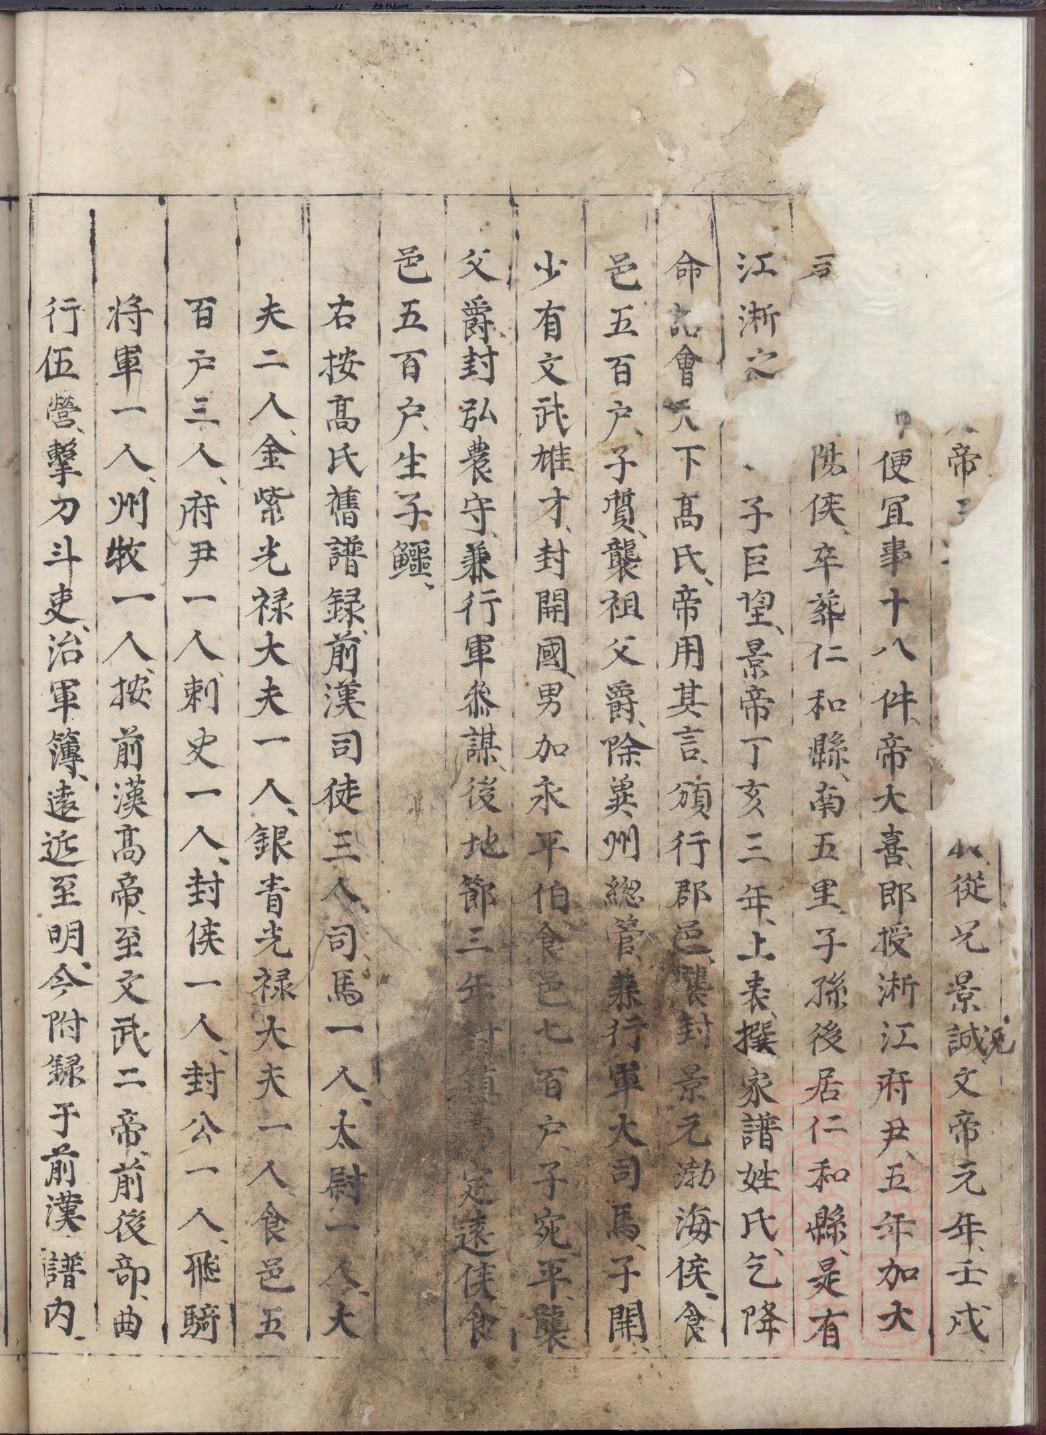 帝 從兄景誠説文帝元年壬戌
便宜事十八件帝大喜郎授淅江府尹五年加大
侯卒葬仁和縣南五里子孫後居仁和縣是有
江淅之 子巨望景帝丁亥三年上表撰家譜姓氏乞降
命 會天下髙氏帝用其言頒行郡邑襲封景元渤海侯食
邑五百户子質襲祖父爵除兾州總管兼行軍大司馬子開
少有文武雄才封開國男加永平伯食邑七百户子宛平襲
父爵封弘農守兼行軍叅謀後地節三年封鎮 定遠侯食
邑五百户生子鱷
右按髙氏舊譜録前漢司徒三人司馬一人太尉一人大
夫二人金紫光禄大夫一人銀青光禄大夫一人食邑五
百户三人府尹一人刺史一人封侯一人封公一人飛騎
将軍一人州牧一人按前漢髙帝至文武二帝前後部曲
行伍營擊刀斗吏治軍簿遠近至明今附録于前漢譜内